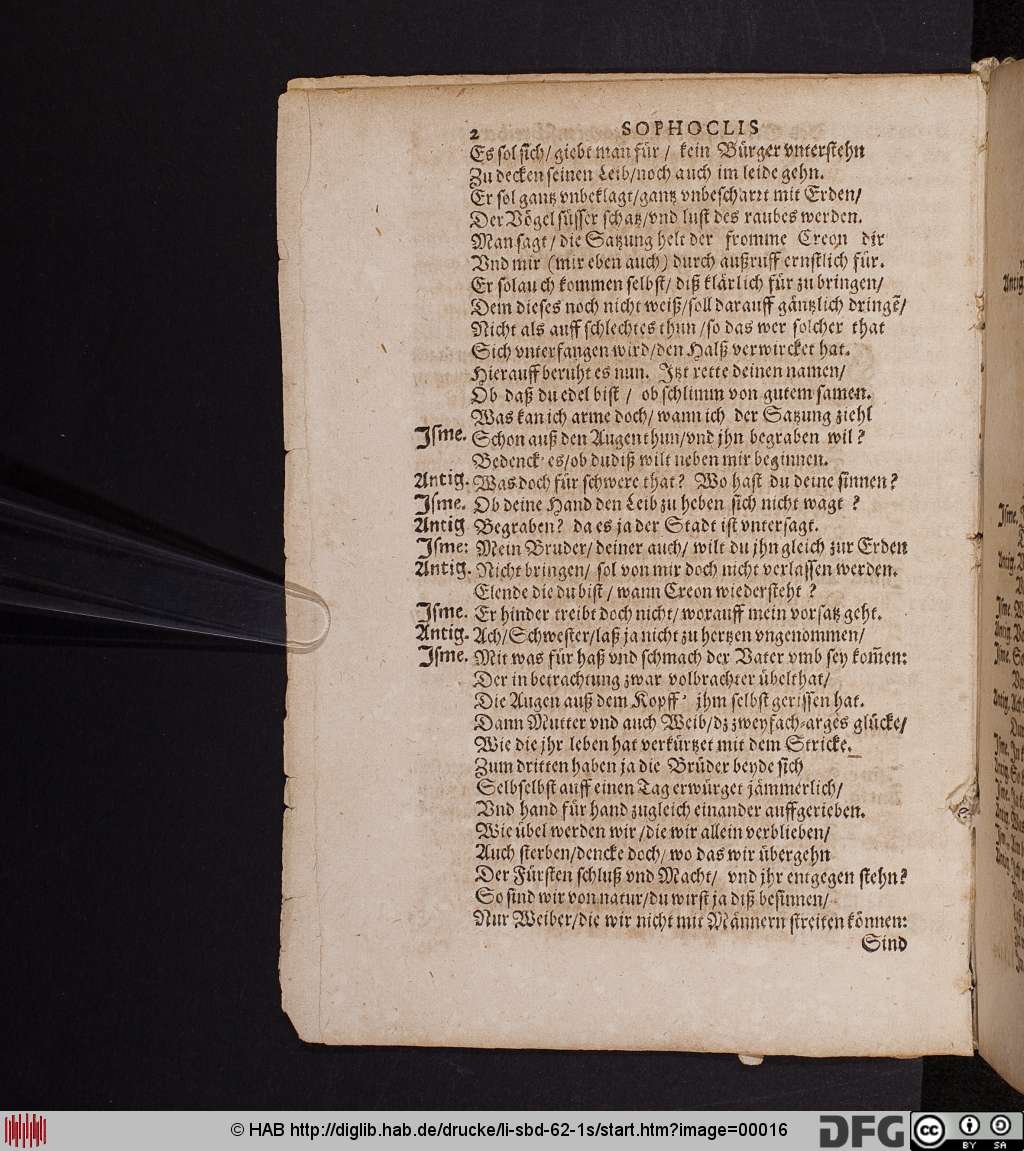 2 SOPHOCLIS
Es sol sich/ giebt man für / kein Bürger vnterstehn
Zu decken seinen Leib/noch auch im leide gehn.
Er sol gantz vnbeklagt/gantz vnbescharrt mit Erden/
Der Vögel süsser schatz/vnd lust des raubes werden.
Man sagt / die Satzung helt der fromme Creon dir
Vnd mir (mir eben auch) durch außruff ernstlich für.
Er solau ch kommen selbst/ diß klärlich für zu bringen/
Dem dieses noch nicht weiß/soll darauff gäntzlich dringẽ/
Nicht als auff schlechtes thun /so das wer solcher that
Sich vnterfangen wird/den Halß verwircket hat.
Hierauff beruht es nun. Itzt rette deinen namen/
Ob daß du edel bist / ob schlimm von gutem samen.
Was kan ich arme doch/ wann ich der Satzung ziehl
Jsme. Schon auß den Augen thun/vnd jhn begraben wil?
Bedenck es/ob dudiß wilt neben mir beginnen.
Antig. Was doch für schwere that? Wo hast du deine sinnen?
Jsme. Ob deine Hand den Leib zu heben sich nicht wagt ?
Antig Begraben? da es ja der Stadt ist vntersagt.
Jsme: Mein Bruder/ deiner auch/ wilt du jhn gleich zur Erden
Antig. Nicht bringen/ sol von mir doch nicht verlassen werden.
Elende die du bist / wann Creon wiedersteht ?
Jsme. Er hinder treibt doch nicht/ worauff mein vorsatz geht.
Antig. Ach/Schwester/laß ja nicht zu hertzen vngenommen/
Jsme. Mit was für haß vnd schmach der Vater vmb sey kom̃en:
Der in betrachtung zwar volbrachter übelthat/
Die Augen auß dem Kopff' jhm selbst gerissen hat.
Dann Mutter vnd auch Weib/dz zweyfach-arges glücke/
Wie die jhr leben hat verkürtzet mit dem Stricke.
Zum dritten haben ja die Brüder beyde sich
Selbselbst auff einen Tag erwürget jämmerlich/
Vnd hand für hand zugleich einander auffgerieben.
Wie übel werden wir /die wir allein verblieben/
Auch sterben/dencke doch/ wo das wir übergehn
Der Fürsten schluß vnd Macht/ vnd jhr entgegen stehn?
So sind wir von natur/du wirst ja diß besinnen/
Nur Weiber/die wir nicht mit Männern streiten können:
Sind
© HAB http://diglib.hab.de/drucke/li-sbd-62-1s/start.htm?image=00016
DFG
cc BY SA